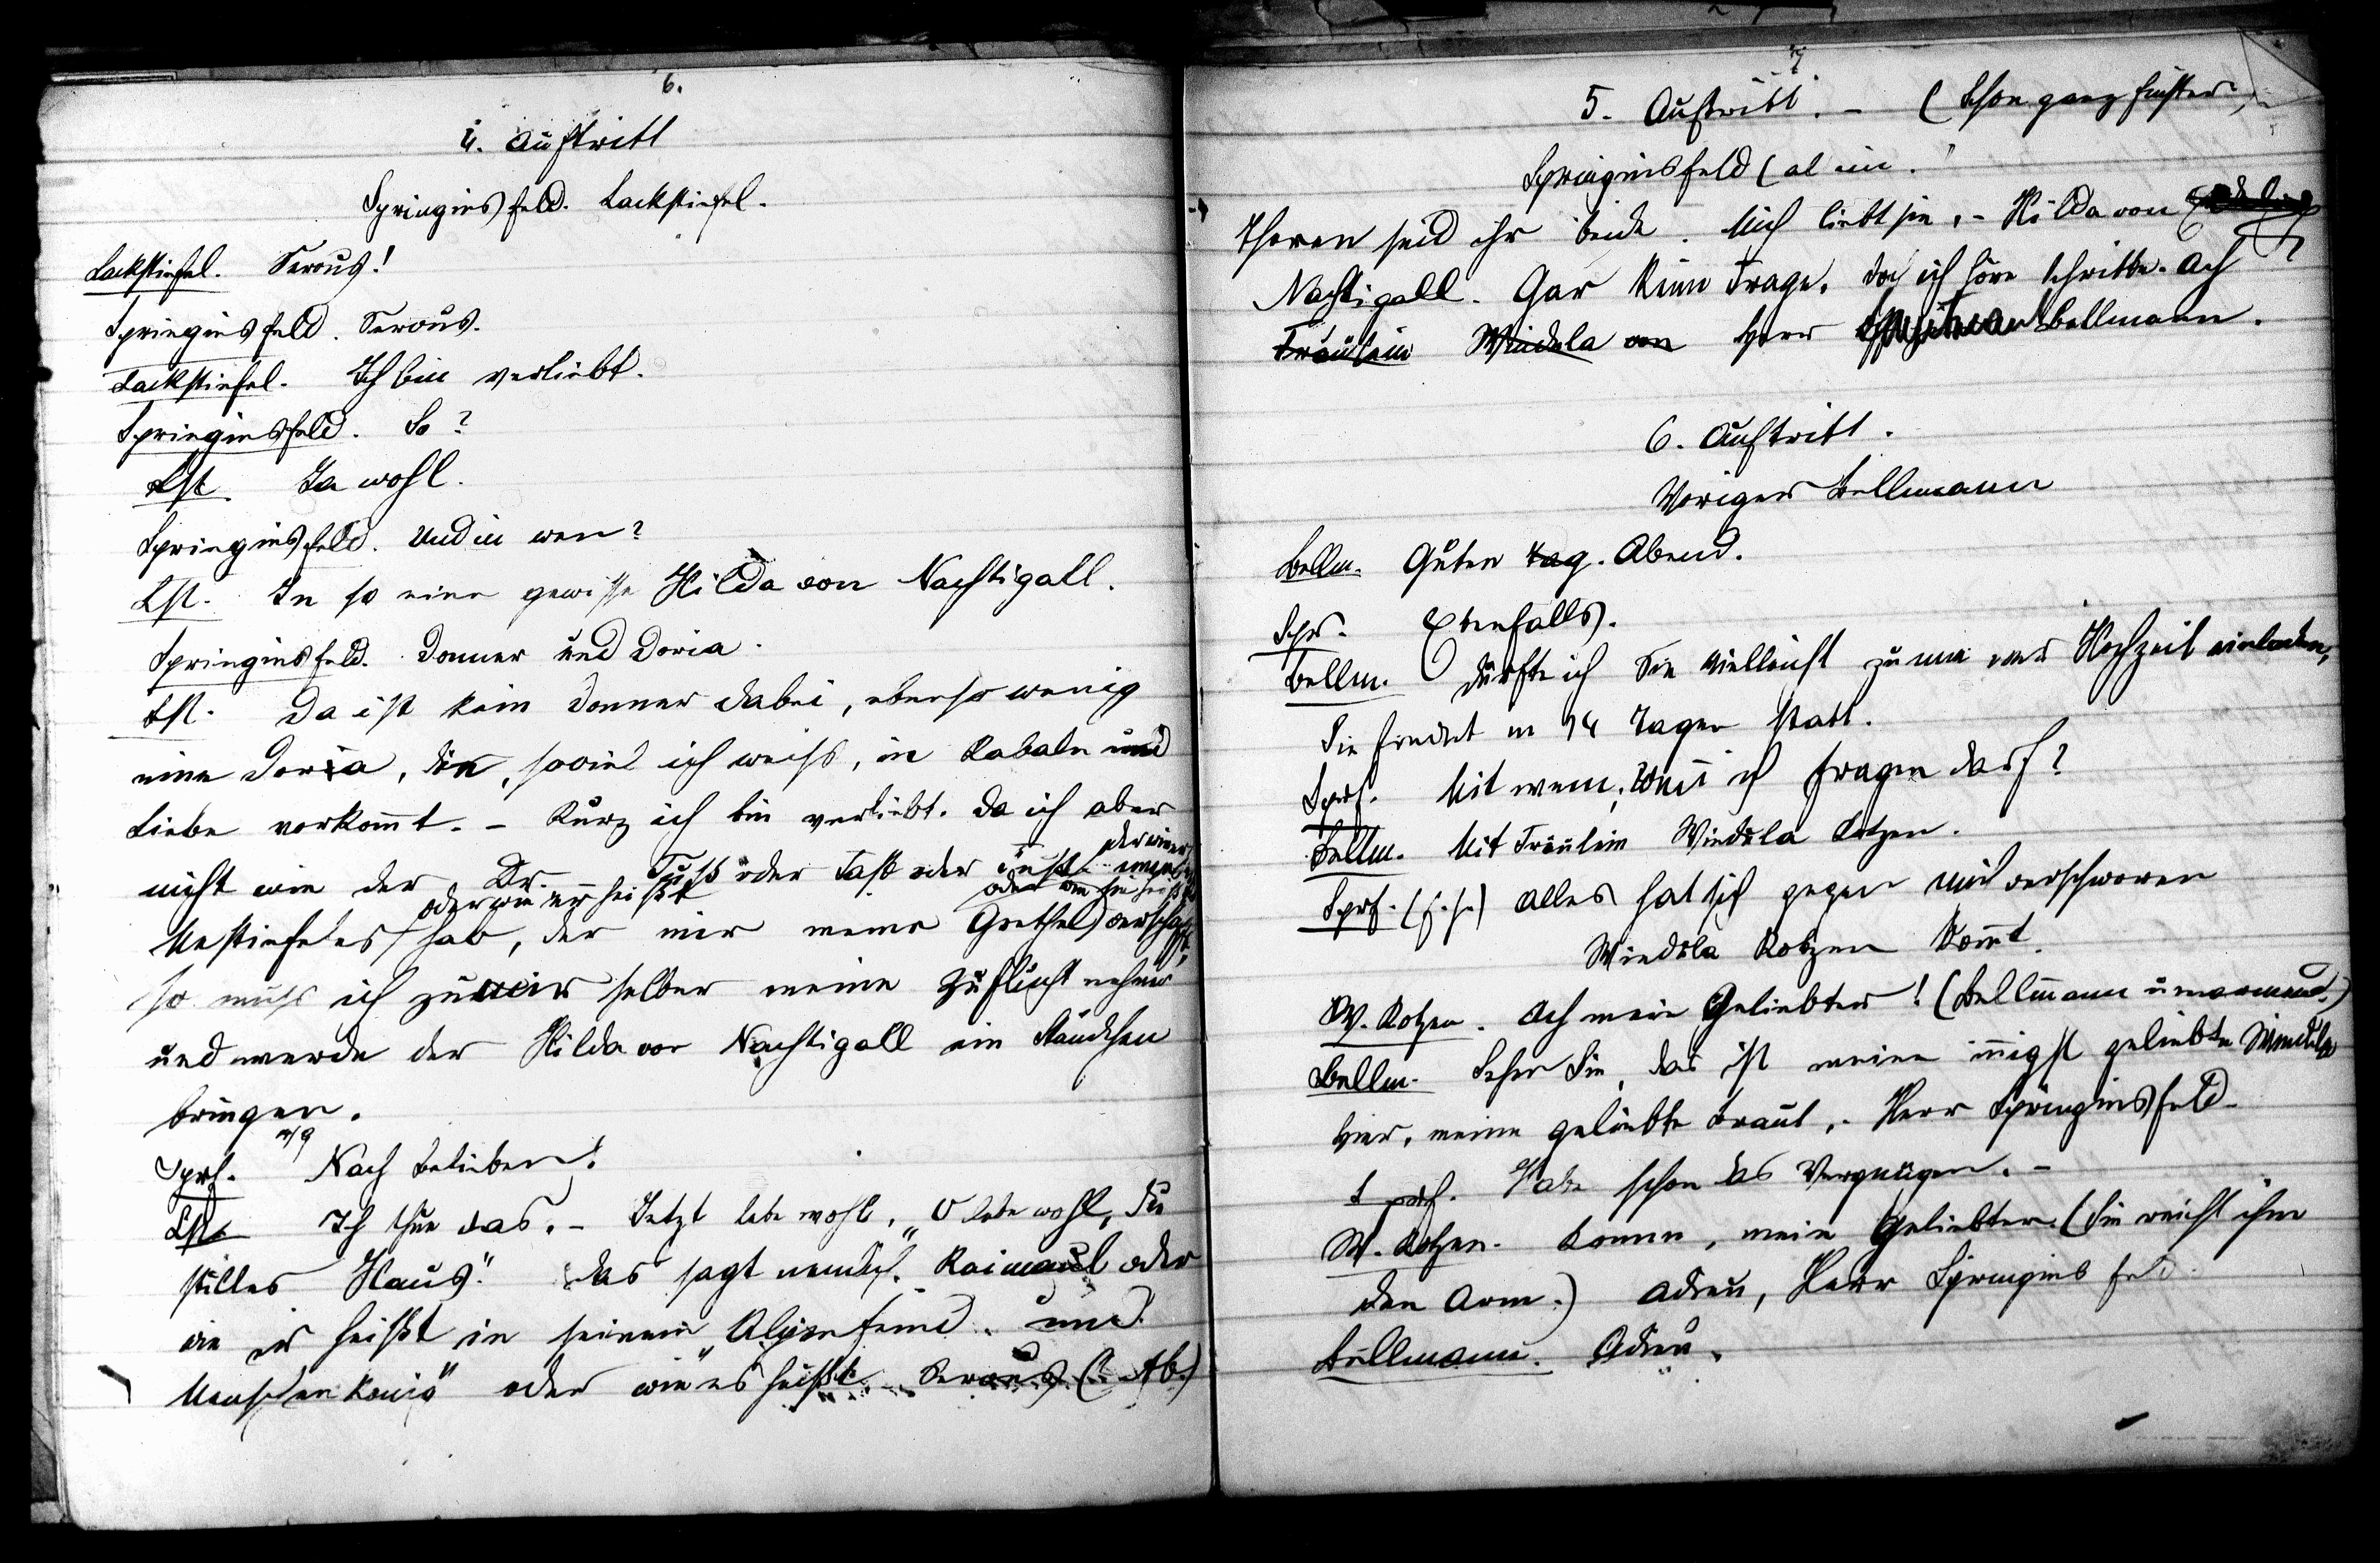 6.
4. Auftritt
Springinsfeld. Lackstiefel.
Lackstiefel. Servus!
Springinsfeld. Servus.
Lackstiefel. Ich bin verliebt.
Springinsfeld. So?
Lst. Ja wohl.
Springinsfeld. Und in wen?
Lst. In so eine gewisse Hilda von Nachtigall.
Springinsfeld. Donner und Doria.
Lst. Da ist kein Donner dabei, ebenso wenig
eine Doria, die, soviel ich weiß, in Kabale und
Liebe vorkommt. – Kurz ich bin verliebt. Da ich aber
nicht wie der Dr. Fuß oder Faß oder
oder wie er heißt
oder wie sie heißt
hab, der mir meine Grethel verschafft,
so muß ich zu mir selber meine Zuflucht nehmen
und werde der Hilda von Nachtigall ein Ständchen
bringen.
Sprf. Nach Belieben!
Lst. Ich thue das. – Jetzt lebe wohl. „O lebe wohl, du
stilles Haus." das sagt nemlich Raimaul oder
wie er heißt in seinem „Alpenfeind und
Menschenkönig" oder wie es heißt. Servus (Ab.)
7
5. Auftritt. – (Schon ganz finster.)
Springinsfeld (allein.)
Thoren seid ihr beide. Mich liebt sie. – Hilda von
Nachtigall. Gar keine Frage. Doch ich höre Schritte. Ach
Fräulein Windela von Herr Bellmann.
6. Auftritt.
Voriger Bellmann
Bellm. Guten Tag. Abend.
Spr. Ebenfalls.
Bellm. Dürfte ich Sie vielleicht zu meiner Hochzeit einladen,
Sie findet in 14 Tagen statt.
Sprf. Mit wem, wenn ich fragen darf?
Bellm. Mit Fräulein Windela Kotzen.
Sprf. (f. s.) Alles hat sich gegen mich verschworen
Windela Kotzen kommt.
W. Kotzen. Ach mein Geliebter! (Bellmann umarmend.)
Bellm. Sehen Sie, das ist meine innigst geliebte Windela
hier, meine geliebte Braut, – Herr Springinsfeld.
Sprf. Habe schon das Vergnügen. –
W. Kotzen. Komm, mein Geliebter. (Sie reicht ihm
den Arm.) Adieu, Herr Springinsfeld.
Bellmann. Adieu.